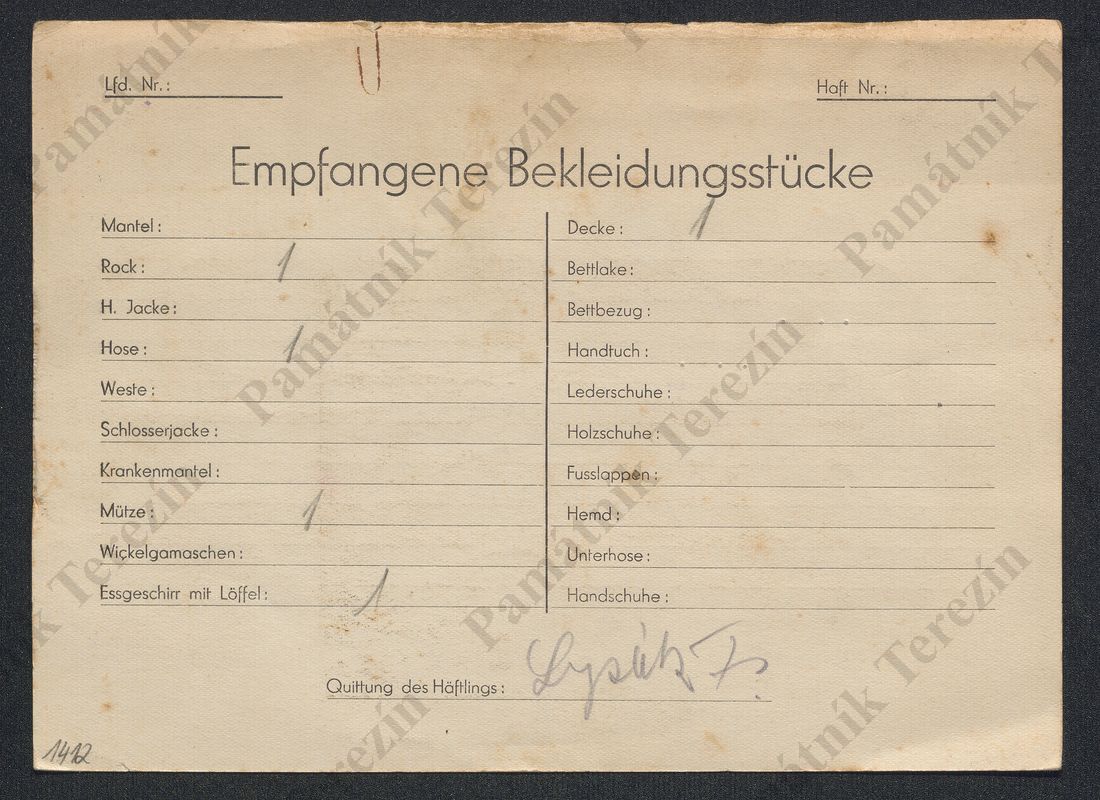 Lfd. Nr.:
Haft Nr.:
Empfangene Bekleidungsstücke
Mantel:
Rock: 1
H. Jacke:
Hose: 1
Weste:
Schlosserjacke:
Krankenmantel:
Mütze: 1
Wickelgamaschen:
Essgeschirr mit Löffel: 1
Decke: 1
Bettlake:
Bettbezug:
Handtuch:
Lederschuhe:
Holzschuhe:
Fusslappen:
Hemd:
Unterhose:
Handschuhe:
Quittung des Häftlings: Lysák F.
1412
Památník Terezín